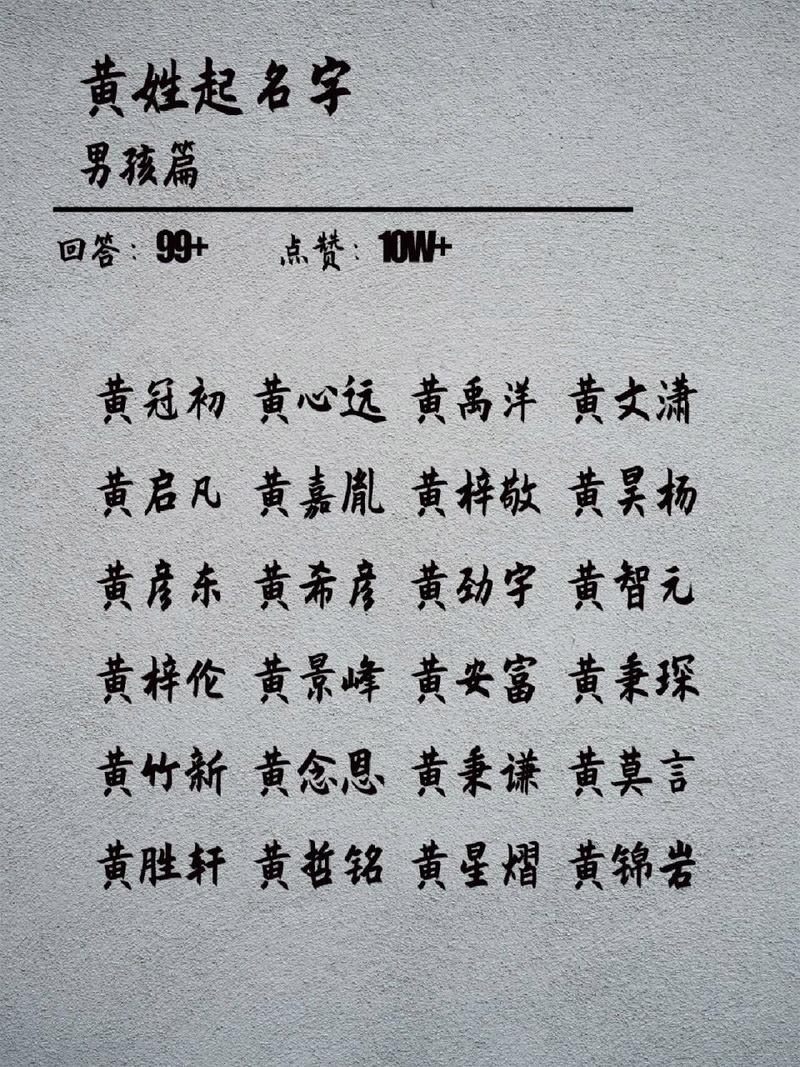 黄姓起名字
男孩篇
回答：99+ 点赞：10W+
黄冠初 黄心远 黄禹洋 黄文潇
黄启凡 黄嘉胤 黄梓敬 黄昊杨
黄彦东 黄希彦 黄劲宇 黄智元
黄梓伦 黄景峰 黄安富 黄秉琛
黄竹新 黄念恩 黄秉谦 黄莫言
黄胜轩 黄哲铭 黄星熠 黄锦岩